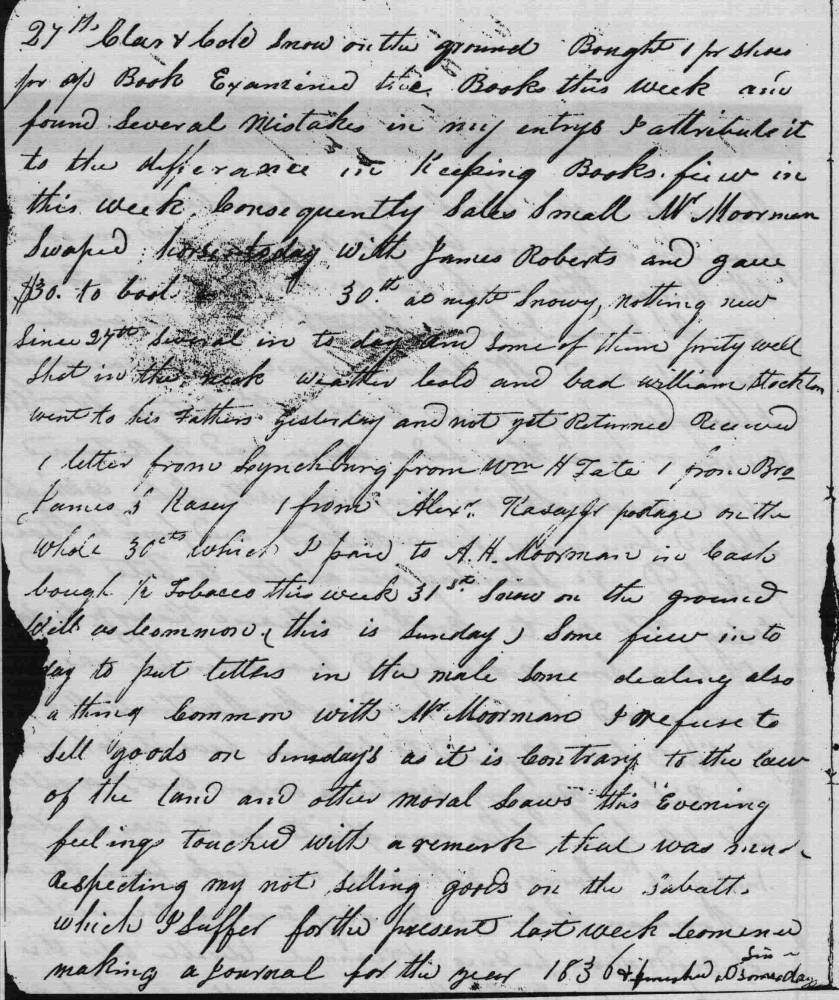 27th Clear & Cold Snow on the ground Bought 1 pr shoes
pr ap Book Examined the Books this week and
found Several Mistakes in my entrys I attribute it
to the differance in Keeping Books. fiew in
this week Consequently Sales Small Mr Moorman
Swaped horses today with James Roberts and gave
$30. to boot 30.th at night Snowy, nothing new
Since 27th Several in to day and Some of them prety well
Shot in the neak weather Cold and bad william Stockton
went to his Fathers yesterday and not yet Returned Received
1 letter from Lynchburg from Wm H Tate 1 from Bro
James S Kasey 1 from Alexr. Kasey Jr postage on the
whole 30cts which I paid to A. H. Moorman in Cash
bough Tobacco this week 31st. Snow on the ground
Still as Common (this is Sunday) Some fiew in to
day to put letters in the male Some dealing also
a thing Common with Mr Moorman I refuse to
Sell goods on Sunday's as it is Contrary to the law
of the land and other moral Laws this Evening
feelings touched with a remark that was
Respecting my not selling goods on the Sabath.
which I Suffer for the present last week Comence
making a Journal for the year 1836 & finished